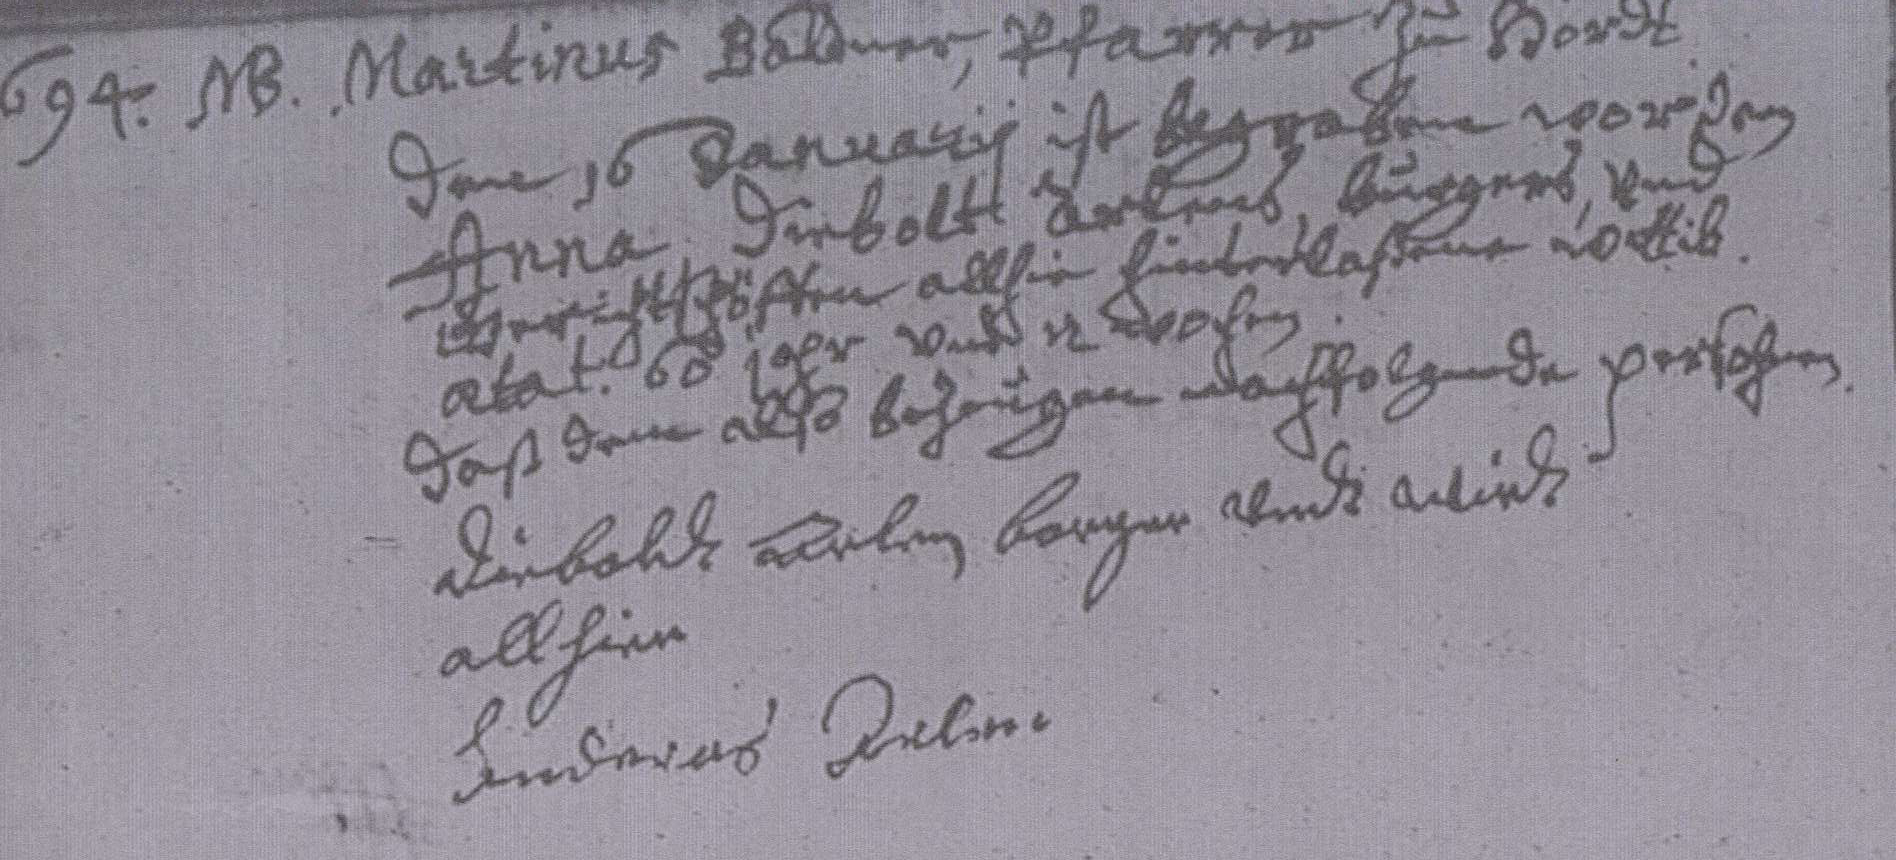 694. NB. Martinus Bödner, Pfarrer zu Hördt
Den 16 Januarij ist begraben worden
Anna Diebolt Arlens, burgers, und
Gerichtschöffen allhie hinterlaßene wittib.
ætat. 60 jahr und 12 wochen.
Daß deme also bezeugen nachfolgende persohnen.
Diebold burger undt
allhier
Enderes